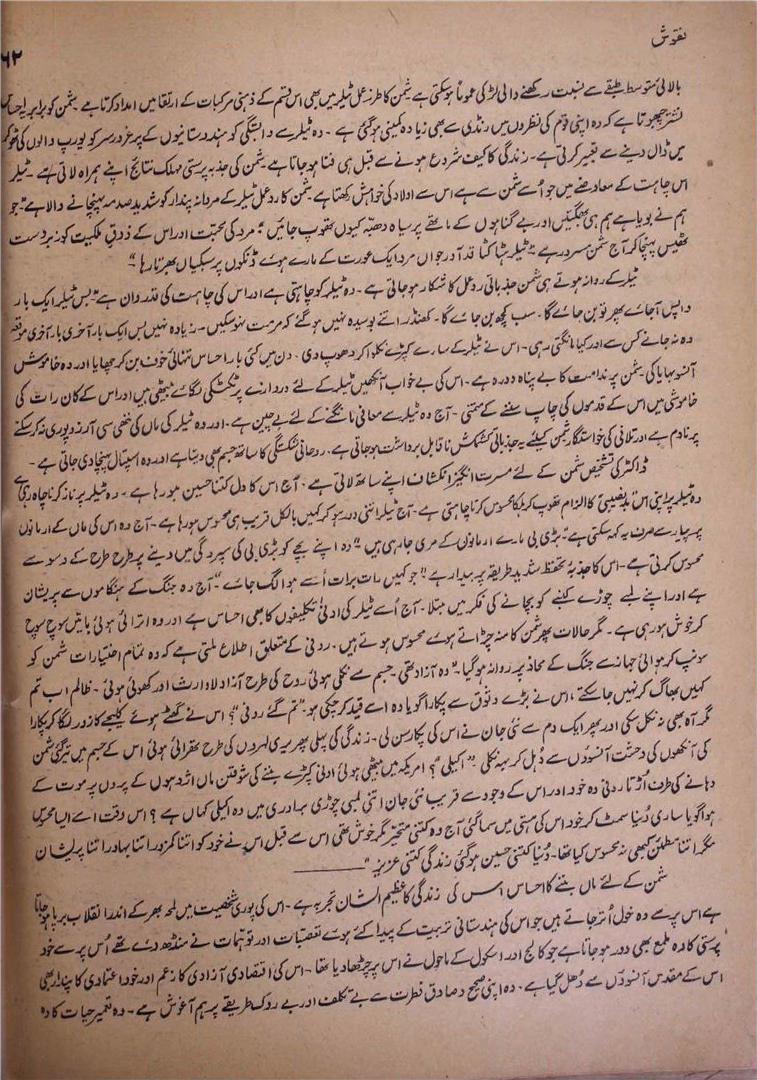 نقوش
۶۲
بالائی متوسط طبقے سے نسبت رکھنے والی لڑکی عموماً ہوسکتی ہے شمن کا طرز عمل ٹیلر میں بھی اس قسم کے ذہنی مرکبات کے ارتقا میں امداد کرتا ہے شمن کو برابر یہ احساس
نشتر چبھوتا ہے کہ وہ اپنی قوم کی نظروں میں رنڈی سے بھی زیادہ کمینی ہوگئی ہے ۔ وہ ٹیلر سے وابستگی کو ہندوستانیوں کے پرغرور سر کو یورپ والوں کی ٹھوکر
میں ڈال دینے سے تعبیر کرتی ہے۔ زندگی کا کیف شروع ہونے سے قبل ہی فنا ہوجاتا ہے ۔ شمن کی جذبہ پرستی مہلک نتائج اپنے ہمراہ لاتی ہے ۔ ٹیلر
اس چاہت کے معاوضے میں جو اُسے شمن سے ہے اس سے اولاد کی خواہش رکھتا ہے۔ شمن کا ردعمل ٹیلر کے مردانہ پندار کو شدید صدمہ پہنچانے والا ہے "جو
ہم نے بویا ہے ہم ہی بھگتیں اور بے گناہوں کے ماتھے پر سیاہ دھبہ کیوں تھوپ جائیں" مرد کی محبت اور اس کے ذوقِ ملکیت کو زبردست
ٹھیس پہنچا کر آج شمن مسرور ہے "ٹیلر ہٹا کٹا قدآور جواں مرد ایک عورت کے مارے ہوئے ڈنکوں پر سسکیاں بھرتا رہا"
ٹیلر کے روانہ ہوتے ہی شمن جذباتی ردعمل کا شکار ہوجاتی ہے ۔ وہ ٹیلر کو چاہتی ہے اور اس کی چاہت کی قدردان ہے "بس ٹیلر ایک بار
واپس آجائے پھر تو بن جائے گا ۔ سب کچھ بن جائے گا ۔ کھنڈر اتنے بوسیدہ نہیں ہوگئے کہ مرمت نہ ہوسکیں۔ زیادہ نہیں بس ایک بار آخری بار آخری موقعہ
وہ نہ جانے کس سے اور کیا مانگتی رہی ۔ اس نے ٹیلر کے سارے کپڑے نکلوا کر دھوپ دی ۔ دن میں کئی بار احساس تنہائی خوف بن کر چھایا اور وہ خاموش
آنسو بہایا کی شمن پر ندامت کا بے پناہ دورہ ہے ۔ اس کی بے خواب آنکھیں ٹیلر کے لئے دروازے پر ٹکٹکی لگائے بیٹھی ہیں اور اس کے کان رات کی
خاموشی میں اس کے قدموں کی چاپ سننے کے متمنی ۔ آج وہ ٹیلر سے معافی مانگنے کے لئے بے چین ہے۔ اور وہ ٹیلر کی ماں کی ننھی سی آرزو پوری نہ کرسکنے
پر نادم ہے اور تلافی کی خواستگار شمن کیلئے یہ جذباتی کشمکش ناقابل برداشت ہوجاتی ہے ۔ روحانی شکستگی کا ساتھ جسم بھی دیتا ہے اور وہ اسپتال پہنچا دی جاتی ہے ۔
ڈاکٹر کی تشخیص شمن کے لئے مسرت انگیز انکشاف اپنے ساتھ لاتی ہے ۔ آج اس کا دل کتنا حسین ہورہا ہے ۔ وہ ٹیلر پر ناز کرنا چاہ رہی ہے
وہ ٹیلر پر اپنی اس بدنصیبی کا الزام تھوپ کر ہلکا محسوس کرنا چاہتی ہے ۔ آج ٹیلر اتنی دور ہو کر کہیں بالکل قریب ہی محسوس ہورہا ہے ۔ آج وہ اس کی ماں کے ارمانوں
پر پیار سے صرف یہ کہہ سکتی ہے "بڑی بی مارے ارمانوں کے مری جارہی ہیں" وہ اپنے بچے کو بڑی بی کی سپردگی میں دینے پر طرح طرح کے وسوسے
محسوس کرتی ہے ۔ اس کا جذبۂ تحفظ شدید طریقہ پر بیدار ہے "جو کہیں رات برات اُسے ہوا لگ جائے" آج وہ جنگ کے ہنگاموں سے پریشان
ہے اور اپنے لمبے چوڑے کنبے کو بچانے کی فکر میں مبتلا ۔ آج اُسے ٹیلر کی ادنیٰ تکلیفوں کا بھی احساس ہے اور وہ اترائی ہوئی باتیں سوچ سوچ
کر خوش ہورہی ہے ۔ مگر حالات پھر شمن کا منہ چڑاتے ہوئے محسوس ہوتے ہیں ۔ رونی کے متعلق اطلاع ملتی ہے کہ وہ تمام اختیارات شمن کو
سونپ کر ہوائی جہاز سے جنگ کے محاذ پر روانہ ہوگیا ۔ "وہ آزاد تھی ۔ جسم سے نکلی ہوئی روح کی طرح آزاد لاوارث اور کھوئی ہوئی ۔ ظالم اب تم
کہیں بھاگ کر نہیں جاسکتے ، اس نے بڑے وثوق سے پکارا گویا وہ اسے قید کرچکی ہو۔ "تم گئے رونی"؟ اس نے گھٹے ہوئے کلیجے کا زور لگا کر پکارا
مگر آہ بھی نہ نکل سکی اور پھر ایک دم سے نئی جان نے اس کی پکار سن لی۔ زندگی کی پہلی پھریری لہروں کی طرح تھرائی ہوئی اس کے جسم میں تیر گئی شمن
کی آنکھوں کی دحشت آنسوؤں سے دُھل کر بہہ نکلی "اکیلی"؟ امریکہ میں بیٹھی ہوئی اونی کپڑے بننے کی شوقین ماں اژدہوں کے پروں پر موت کے
دہانے کی طرف اُڑتا رونی وہ خود اور اس کے وجود سے قریب نئی جان اتنی لمبی چوڑی برادری میں وہ اکیلی کہاں ہے ؟ اس وقت اسے ایسا محسوس
ہوا گویا ساری دُنیا سمٹ کر خود اس کی ہستی میں سماگئی آج وہ کتنی متحیر مگر خوش تھی اس سے قبل اس نے خود کو اتنا کمزور اتنا بہادر اتنا پریشان
مگر اتنا مطمئن کبھی نہ محسوس کیا تھا ۔ دُنیا کتنی حسین ہوگئی زندگی کتنی عزیز"
شمن کے لئے ماں بننے کا احساس اس کی زندگی کا عظیم الشان تجربہ ہے ۔ اس کی پوری شخصیت میں لمحہ بھر کے اندر انقلاب برپا ہوجاتا
ہے اس پر سے وہ خول اُتر جاتے ہیں جو اس کی ہندستانی تربیت کے پیدا کئے ہوئے تعصبات اور توہمات نے منڈھ دئے تھے اُس پر سے خود
پرستی کا وہ ملمع بھی دور ہوجاتا ہے جو کالج اور اسکول کے ماحول نے اس پر چڑھا دیا تھا ۔ اس کی اقتصادی آزادی کا زعم اور خود اعتمادی کا پندار بھی
اس کے مقدس آنسوؤں سے دُھل گیا ہے ۔ وہ اپنی صحیح و صادق فطرت سے بے تکلف اور بے روک طریقے پر ہم آغوش ہے ۔ وہ تعمیرِ حیات کا وہ